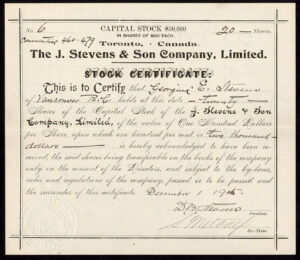 No. 6 CAPITAL STOCK $50,000 20 Shares.
IN SHARES OF $100 EACH
460-479
Toronto, Canada.
The J. Stevens & Son Company, Limited.
STOCK CERTIFICATE:
This is to Certify that Georgina E. Stevens
of Vancouver B.C. holds at this date twenty
Shares of the Capital Stock of the J. Stevens & Son
Company, Limited, of the value of One Hundred Dollars
per Share, upon which one hundred per cent or two thousand
dollars is hereby acknowledged to have been re-
ceived, the said shares being transferable on the books of the company
only on the consent of the Directors, and subject to the by-
laws, rules and regulations of the company, passed or to be passed and the
surrender of this certificate. December 1
President.
Sec-Treas.